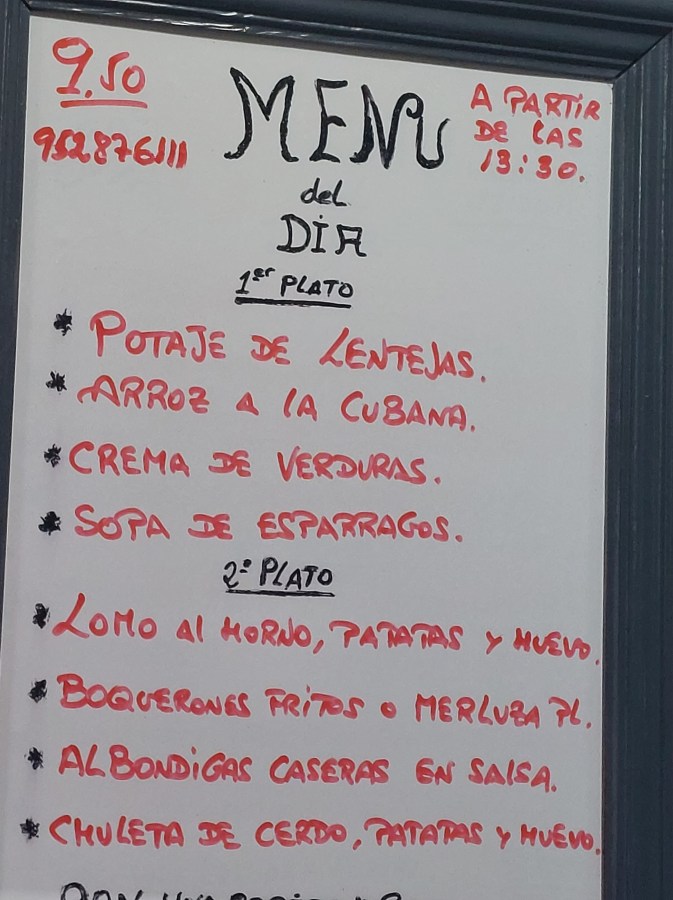 9.50
952876111
MENU
A PARTIR
DE LAS
13:30.
del
DIA
1er PLATO
* POTAJE DE LENTEJAS.
* ARROZ A LA CUBANA.
* CREMA DE VERDURAS.
* SOPA DE ESPARRAGOS.
2º PLATO
* LOMO Al HORNO, PATATAS Y HUEVO.
* BOQUERONES FRITOS O MERLUZA PL.
* ALBONDIGAS CASERAS EN SALSA.
* CHULETA DE CERDO, PATATAS Y HUEVO.